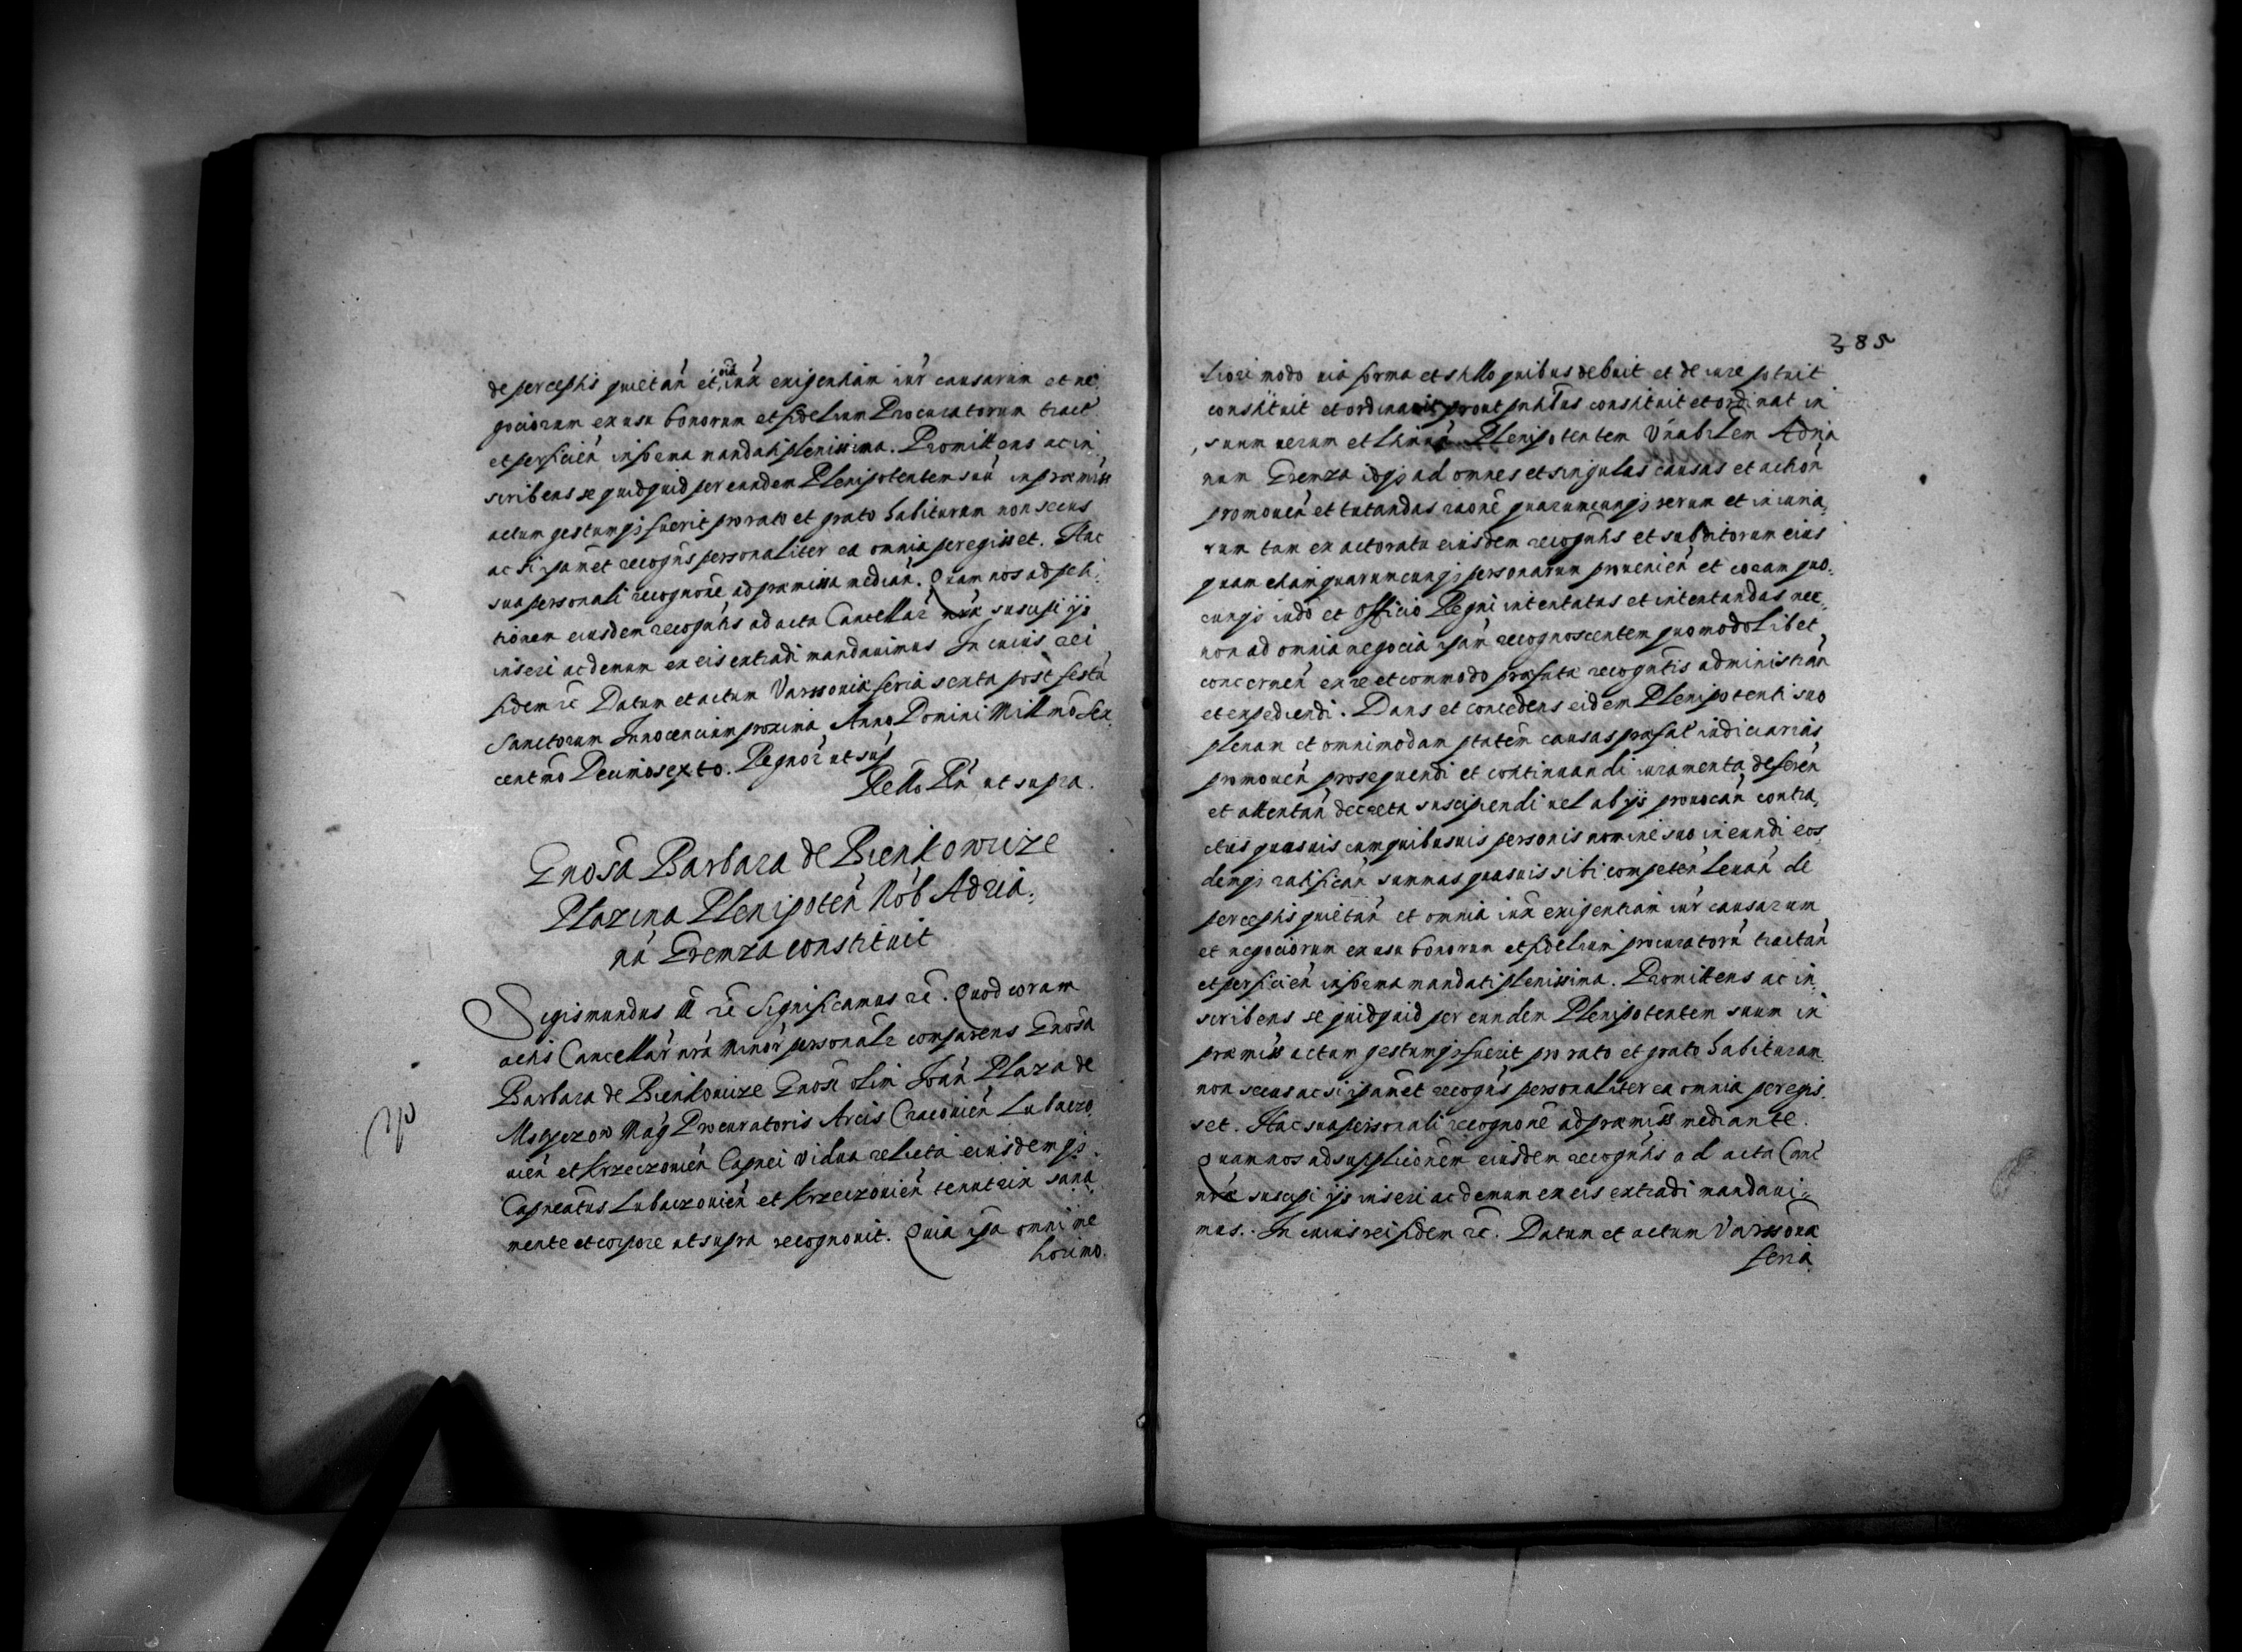 de perceptis quietan̄ et oīa iuxa exigentiam iur̄ causarum et ne:
gociorum ex usu bonorum et fidelium Procuratorum tract.
et perficien̄ in forma mandati plenissima. Promittens ac in:
scribens se quidquid per eundem Plenipotentem suū in præmiss
actum gestumq; fuerit pro rato et grato habituram non secus
ac si ipamet recogn̄s personaliter ea omnia peregisset. Hac
sua personali recognōne ad præmissa median̄. Quam nos ad peti:
tionem eiusdem recogn̄tis ad acta Cancellar̄ nr̄æ suscipi ijs
inseri ac demum ex eis extradi mandauimus In cuius rei
fidem rc̄ Datum et actum Varssouiæ feria sexta post festū
Sanctorum Innocencium proxima Anno Domini Millmō Sex
centmō Decimosexto. Regnor̄ ut sup̄
Rello Pn̄ ut supra.
Gnōsa Barbara de Bienkowice
Plazina Plenipoten̄ Nob̄ Adria:
nū Gremza constituit
Sigismundus III rc̄ Significamus rc̄. Quod coram
actis Cancellar̄ nr̄æ Minor̄ personalr̄ comparens Gnōsa
Barbara de Bienkowice Gnōsi olim Joan̄ Plaza de
Msticzow Maḡ Procuratoris Arcis Cracouien̄ Lubaczo
uien̄ et Krzeczouien̄ Capnei vidua relicta eiusdemq;
Capneatus Lubaczouien̄ et Krzeczouien̄ tenutrix sana
mente et corpore ut supra recognouit. Quia ipa omni me
liorimo.
385
liori modo via forma et stillo quibus debuit et de iure potuit
constituit et ordinauit prout pn̄tibus constituit et ordinat in
suum uerum et Plenipotentem Vn̄abilem Adria
num Gremza idq; ad omnes et singulas causas et action̄
promouen̄ et tutandas raōne quarumcunq; rerum et iniuria,
rum tam ex actoratu eiusdem recogn̄tis et subditorum eius
quam etiam quarumcunq; personarum prouenien̄ et coram quo:
cunq; iudō et Officio Regni intentatas et intentandas nec:
non ad omnia negocia ipam recognoscentem quomodolibet
concernen̄ ex re et commodo præfatæ recogn̄tis administran̄
et expediendi. Dans et concedens eidem Plenipotenti suo
plenam et omnimodam ptātem causas præfat̄ iudiciarias
promouen̄ prosequendi et continuandi iuramenta deferen̄
et attentan̄ decreta suscipiendi uel ab ijs prouocan̄ contra,
ctus quosuis cum quibusuis personis nomine suo ineundi eos
demq; ratifican̄ summas quasuis sibi competen̄ leuan̄ de
perceptis quietan̄ et omnia iuxa exigentiam iur̄ causarum
et negociorum ex usu bonorum et fidelium procuratorū tractan̄
et perficien̄ in forma mandati plenissima. Promittens ac in
scribens se quidquid per eundem Plenipotentem suum in
præmiss actum gestumq; fuerit pro rato et grato habituram
non secus ac si ipamet recogn̄s personaliter ea omnia peregis
set. Hac sua personali recognōne ad præmiss mediante.
Quam nos ad supplicionem eiusdem recogn̄tis ad acta Canc̄
nr̄æ suscipi ijs inseri ac demum ex eis extradi mandaui:
mus. In cuius rei fidem rc̄. Datum et actum Varssōuia
feria